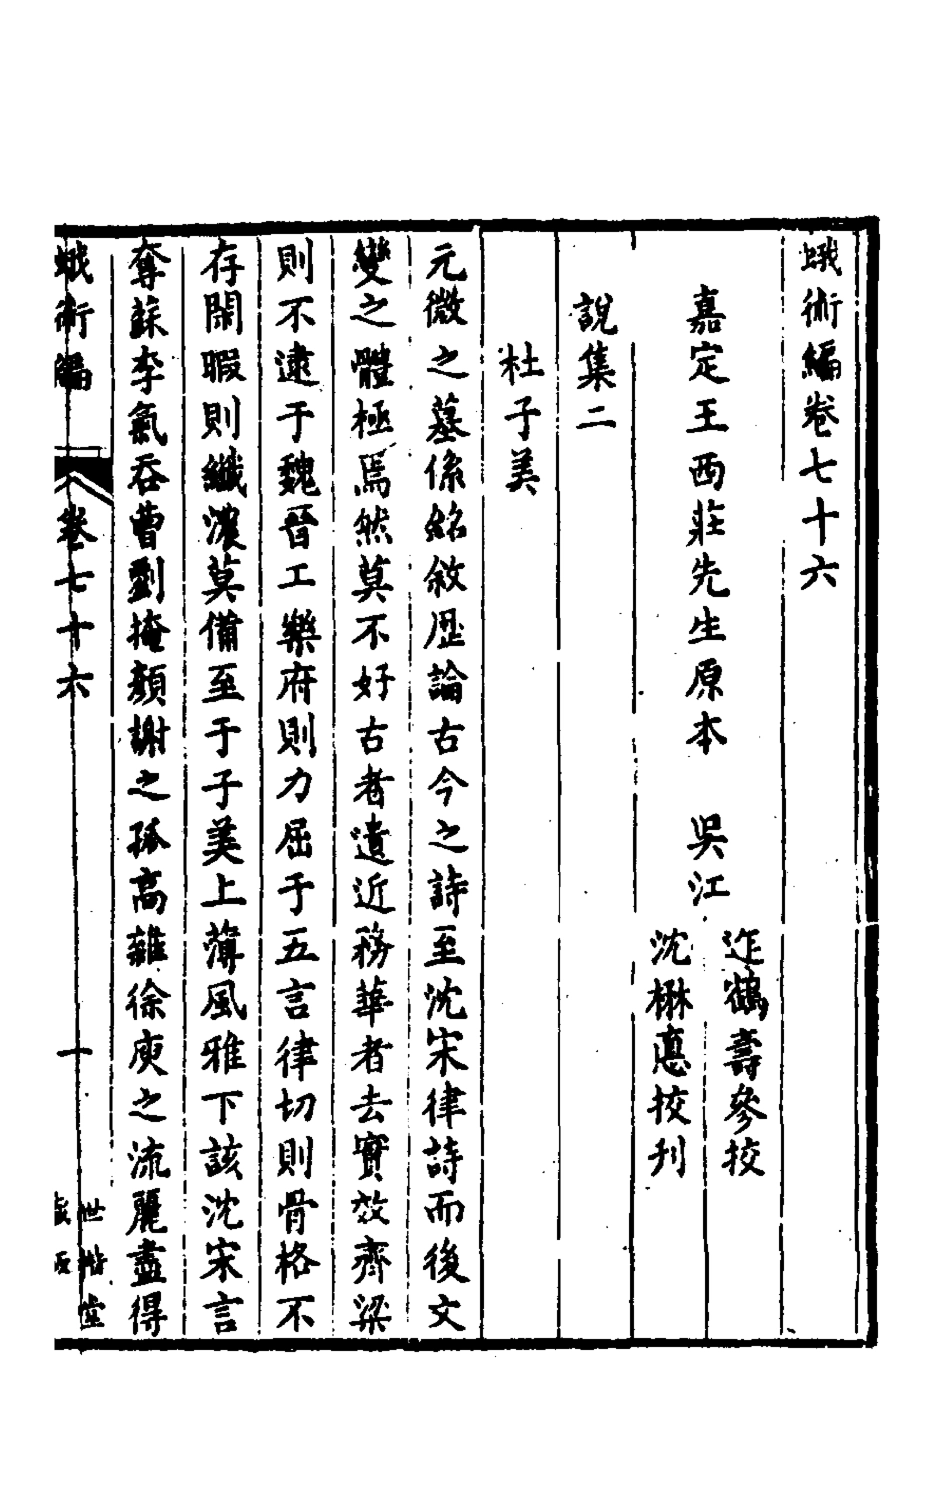 蛾術編卷七十六
嘉定王西莊先生原本　吳江
迮鶴壽參校
沈楙悳挍刊
說集二
杜子美
元微之墓係銘敘歷論古今之詩至沈宋律詩而後文
變之體極焉然莫不好古者遺近務華者去實效齊梁
則不逮于魏晉工樂府則力屈于五言律切則骨格不
存閑暇則纖濃莫備至于子美上薄風雅下該沈宋言
奪蘇李氣吞曹劉掩顏謝之孤高雜徐庾之流麗盡得
蛾術編
卷七十六
十
世楷堂
藏板